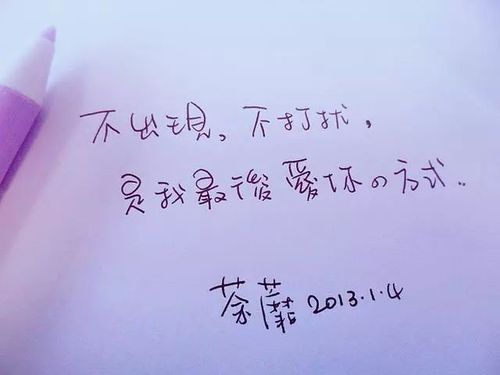 不出現。不打扰,
是我最後愛你の方式。
荼蘼 2013.1.4